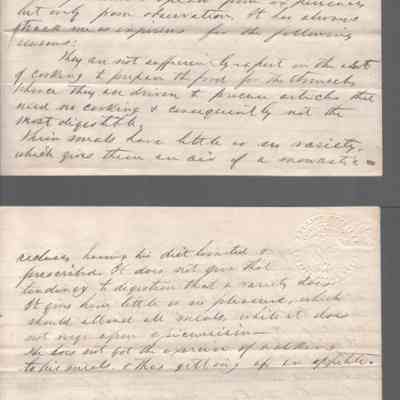 but only from observation. It has always
struck me as expensive for the following
reasons:
They are not sufficiently expert in the art
of cooking to prepare the food for the stomach
hence they are driven to procure articles that
need no cooking & consequently not the
most digestible.
Their meals have little or no variety,
which gives them an air of a monastic
recluse, having his diet limited &
prescribed. It does not give that
tendency to digestion that a variety does
It gives have little or no pleasure, which
should attend all meals, while it does
not verge upon epicurism—
He does not get the exercise of walking
to his meals, & thus getting up an appetite.